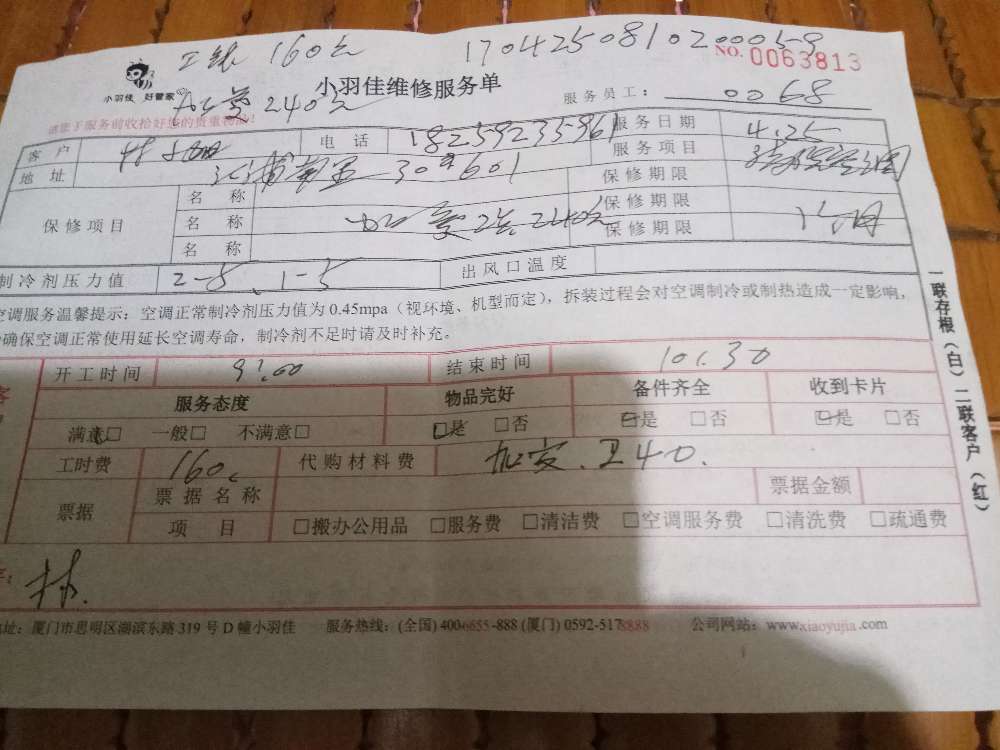 160元 17042508102000059
NO. 0063813
小羽佳 好管家
小羽佳维修服务单
240元
服务员工： 0068
请您于服务前收拾好您的贵重物品！
客 户 电 话 18259235961 服务日期 4.25
地 址 30#601 服务项目
保修项目 名 称 保修期限
名 称 240元 保修期限
名 称 保修期限
制冷剂压力值 2-5、1-5 出风口温度
空调服务温馨提示：空调正常制冷剂压力值为 0.45mpa（视环境、机型而定），拆装过程会对空调制冷或制热造成一定影响，
确保空调正常使用延长空调寿命，制冷剂不足时请及时补充。
开工时间 9:00 结束时间 10:30
服务态度 物品完好 备件齐全 收到卡片
满意□ 一般□ 不满意□ □是 □否 □是 □否 □是 □否
工时费 160 代购材料费 240.
票据 票 据 名 称 票据金额
项 目 □搬办公用品 □服务费 □清洁费 □空调服务费 □清洗费 □疏通费
林.
地址：厦门市思明区湖滨东路 319 号 D 幢小羽佳 服务热线：(全国) 400-6655-888 (厦门) 0592-5178888 公司网站：www.xiaoyujia.com
一联存根（白）二联客户（红）